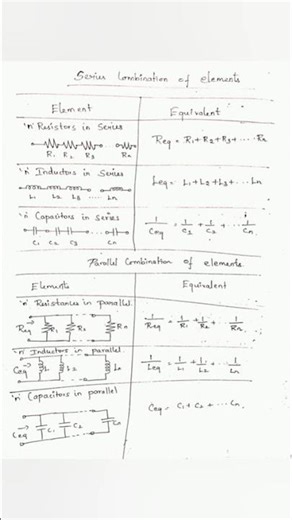 Series Combination of elements
Element Equivalent
'n' Resistors in Series
R1 R2 R3 Rn
Req = R1+R2+R3+ .... Rn
'n' Inductors in Series
L1 L2 L3 .... Ln
Leq = L1+L2+L3+ .... Ln
'n' Capacitors in series
C1 C2 C3 Cn
1/Ceq = 1/C1 + 1/C2 + .... 1/Cn
Parallel Combination of elements
Elements Equivalent
'n' Resistances in parallel
Req → R1 R2 Rn
1/Req = 1/R1 + 1/R2 + .... 1/Rn
'n' Inductors in parallel
Leq → L1 L2 Ln
1/Leq = 1/L1 + 1/L2 + .... 1/Ln
'n' Capacitors in parallel
Ceq → C1 C2 Cn
Ceq = C1 + C2 + ... Cn